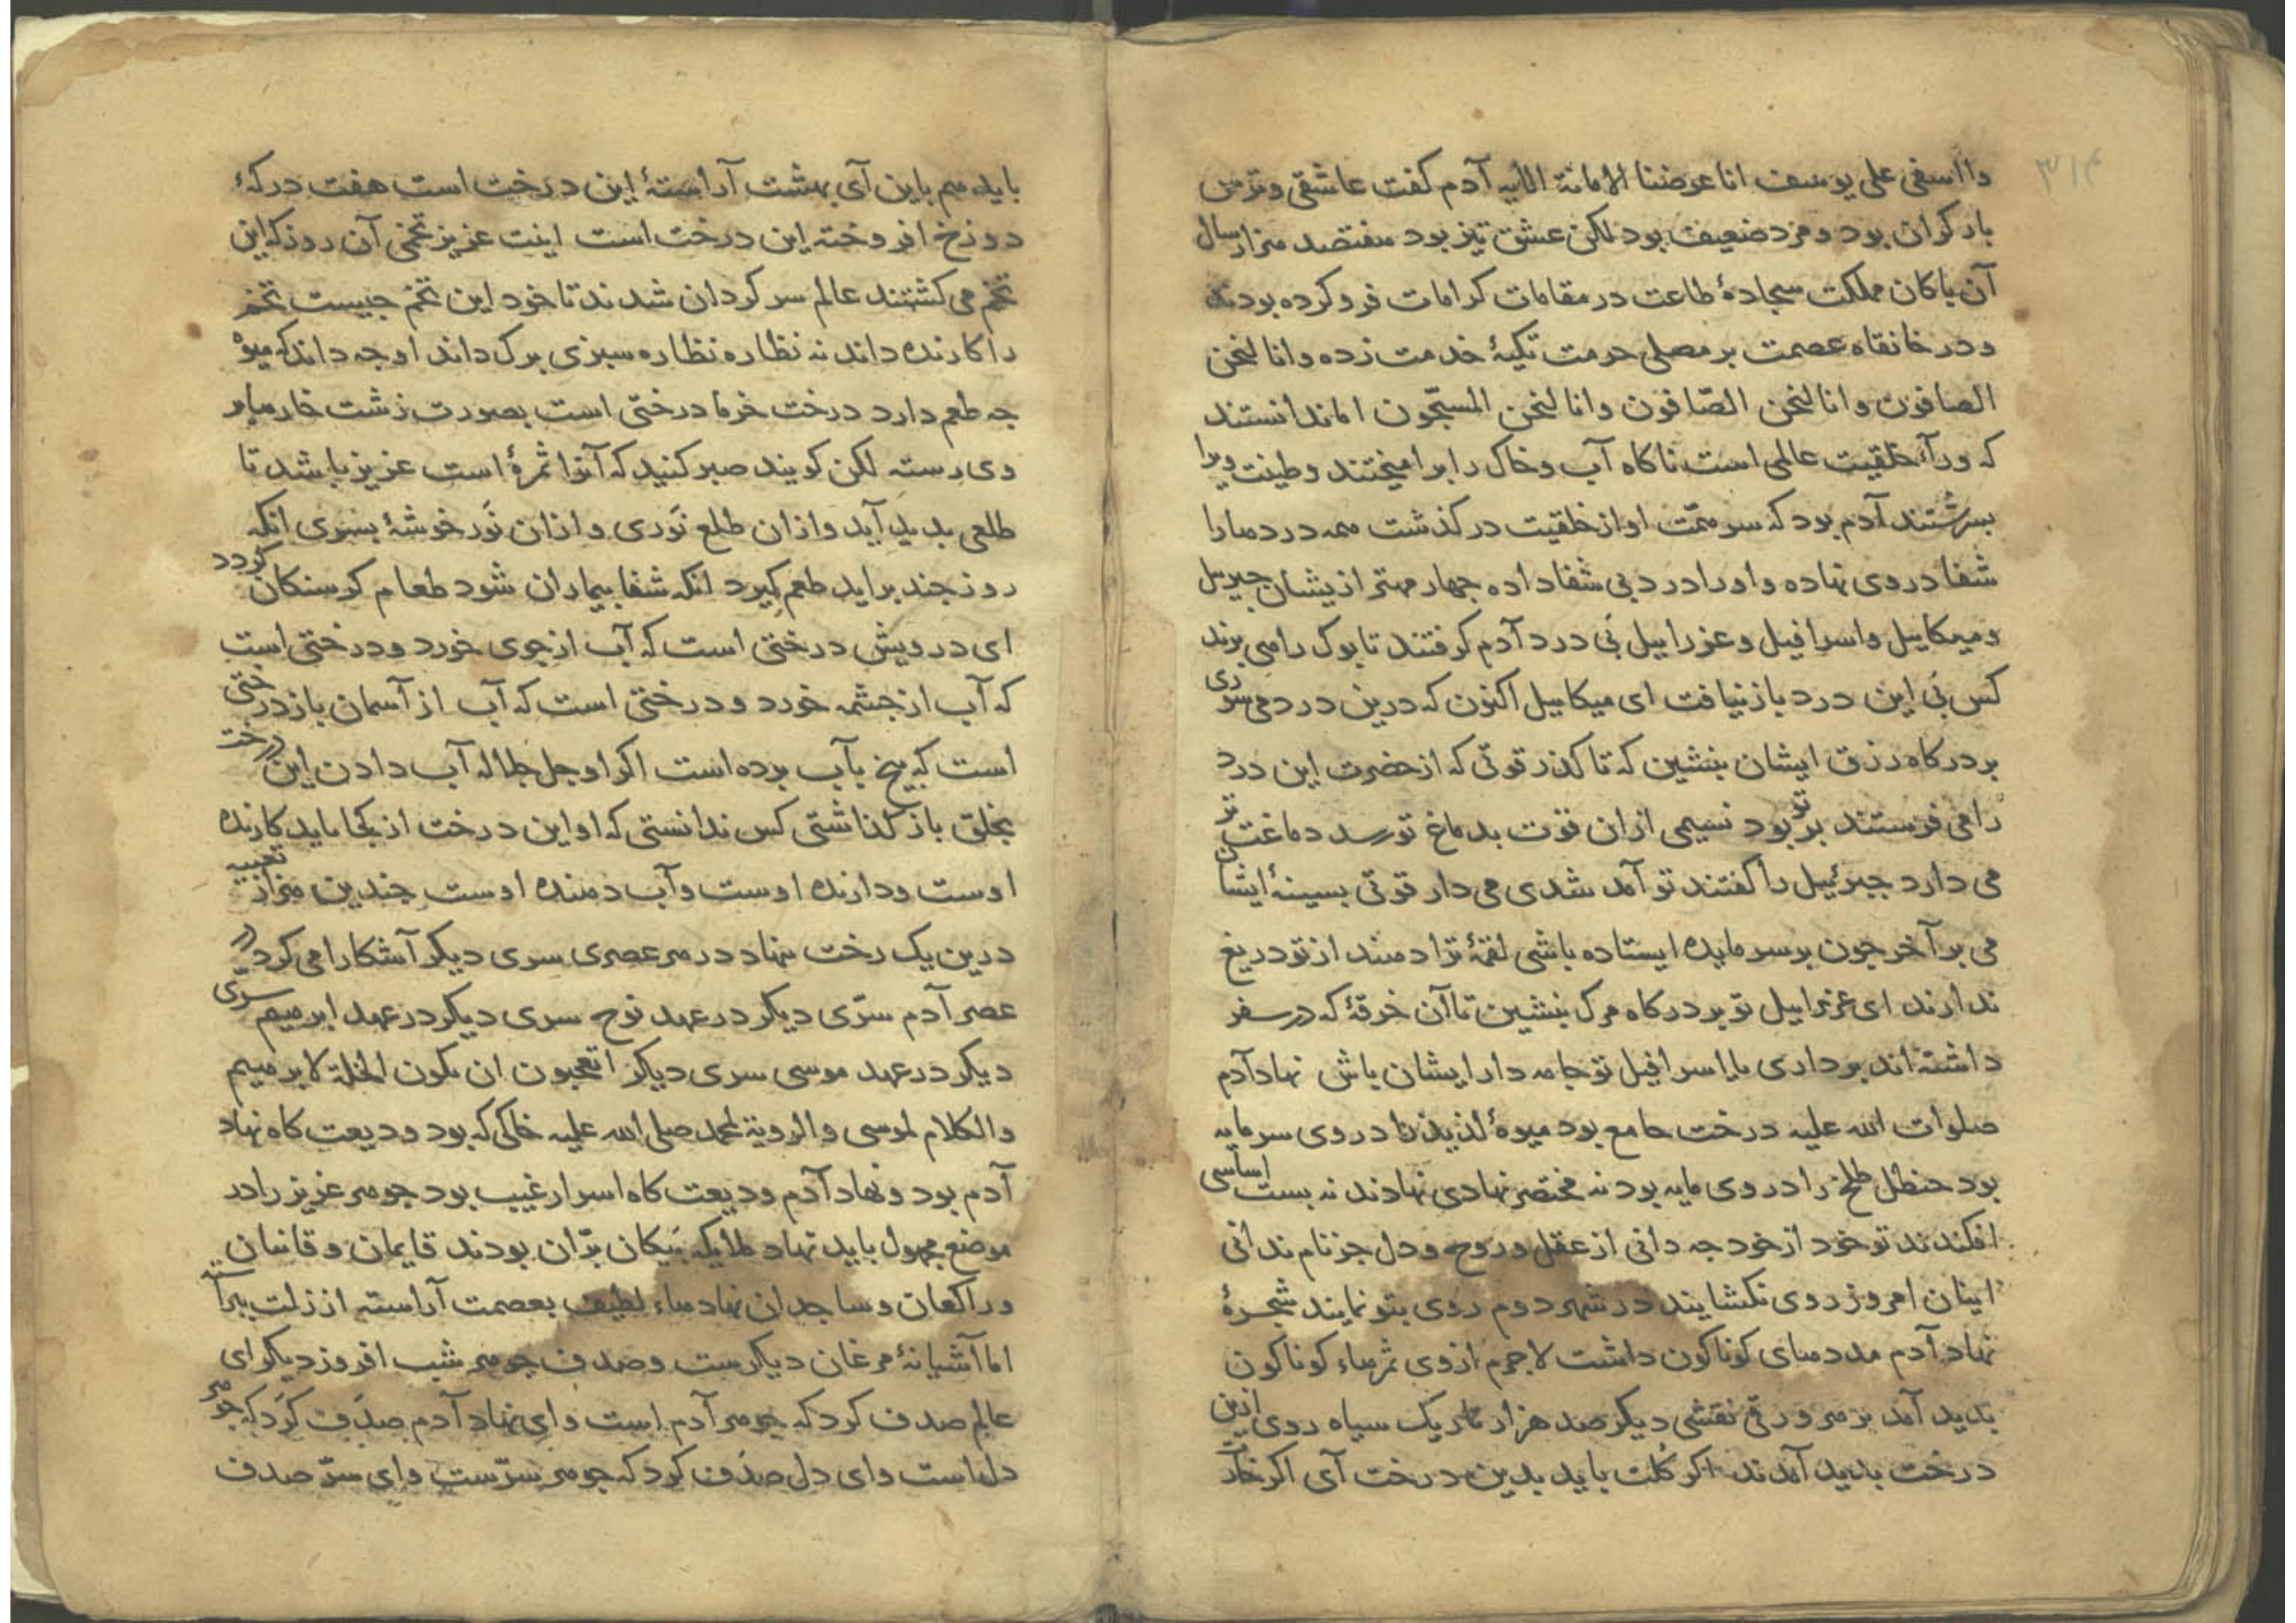 ۳۱۴
وااسفی علی یوسف انا عرضنا الامانة الآیه آدم کفت عاشقی و تزمن
بار کران بود و مزد ضعیف بود لکن عشق تیز بود هفتصد هزار سال
آن پاکان مملکت سجادهٔ طاعت در مقامات کرامات فرو کرده بودند
و در خانقاه عصمت بر مصلی حرمت تکیهٔ خدمت زده وانا لنحن
الصافون وانا لنحن الصّافون وانا لنحن المسبّحون اما ندانستند
که ورآء خلقیت عالمی است ناکاه آب و خاک را برامیختند و طینت ویرا
بسرشتند آدم بود که سر همّت او از خلقیت در کذشت همه دردها را
شفا در وی نهاده و او را درد بی شفا داده جهار مهتر ازیشان جبریل
و میکاییل و اسرافیل و عزراییل پی درد آدم کرفتند تا بوک رامی برند
کس پی این درد باز نیافت ای میکاییل اکنون که درین درد می نرسی
بر درکاه رزق ایشان بنشین که تا کذر قوتی که از حضرت این درد
را می فرستند بر تو بود نسیمی ازان قوت بدماغ تو رسد دماغت تر
می دارد جبرئیل را کفتند تو آمد شدی می دار قوتی بسینهٔ ایشان
می بر آخر جون بر سر مایده ایستاده باشی لقمهٔ ترا دهند از تو دریغ
ندارند ای عزراییل تو بر درکاه مرک بنشین تا آن خرقهٔ که در سفر
داشته اند برداری یا اسرافیل تو جامه دار ایشان باش نهاد آدم
صلوات الله علیه درخت جامع بود میوهٔ لذیذ را در وی سرمایه
بود حنظل طلخ را در وی مایه بود نه مختصر نهادی نهادند نه بست اساسی
افکندند تو خود از خود جه دانی از عقل و روح و دل جز نام ندانی
اینان امروز روی نکشایند در شهر دوم روی بتو نمایند شجرهٔ
نهاد آدم مددهای کوناکون داشت لاجرم از وی ثمرهاء کوناکون
بدید آمد بر هر ورقی نقشی دیکر صد هزار تاریک سیاه روی ازین
درخت بدید آمدند اکر کلت باید بدین درخت آی اکر خار
باید هم باین آی بهشت آراستهٔ این درخت است هفت درکهٔ
دوزخ افروخته این درخت است اینت عزیز تخمی آن روز که این
تخم می کشتند عالم سرکردان شدند تا خود این تخم جیست تخم
را کارنده داند نه نظاره نظاره سبزی برک داند او جه داند که میوه
جه طعم دارد درخت خرما درختی است بصورت زشت خارها بر
وی رسته لکن کویند صبر کنید که آنرا ثمرهٔ است عزیز باشد تا
طلعی بدید آید و ازان طلع نَوری و ازان نَور خوشهٔ بسری انکه
روز جند براید طعم کیرد انکه شفا بیماران شود طعام کرسنکان کردد
ای درویش درختی است که آب از جوی خورد و درختی است
که آب از جشمه خورد و درختی است که آب از آسمان باز درختی
است که بیخ بآب برده است اکر او جل جلاله آب دادن این درخت
بخلق باز کذاشتی کس ندانستی که او این درخت از کجا باید کارنده
اوست و دارنده اوست و آب دهنده اوست جندین هزار تعبیه
درین یک رخت نهاد در هر عصری سری دیکر آشکارا می کرد در
عصر آدم سرّی دیکر در عهد نوح سری دیکر در عهد ابرهیم سرّی
دیکر در عهد موسی سری دیکر اتعجبون ان تکون الخلة لابرهیم
والکلام لموسی والرویة لمحمد صلی الله علیه خاکی که بود ودیعت کاه نهاد
آدم بود و نهاد آدم ودیعت کاه اسرار غیب بود جوهر عزیز را در
موضع مجهول باید نهاد ملایکه پیکان بران بودند قایمان و قانتان
و راکعان و ساجدان نهادهاء لطیف بعصمت آراسته از زلت مبرا
اما آشیانهٔ مرغان دیکرست و صدف جوهر شب افروز دیکر ای
عالم صدف کرد که جوهر آدم است و ای نهاد آدم صدف کرد که جوهر
دل است و ای دل صدف کرد که جوهر سرّست و ای سرّ صدف